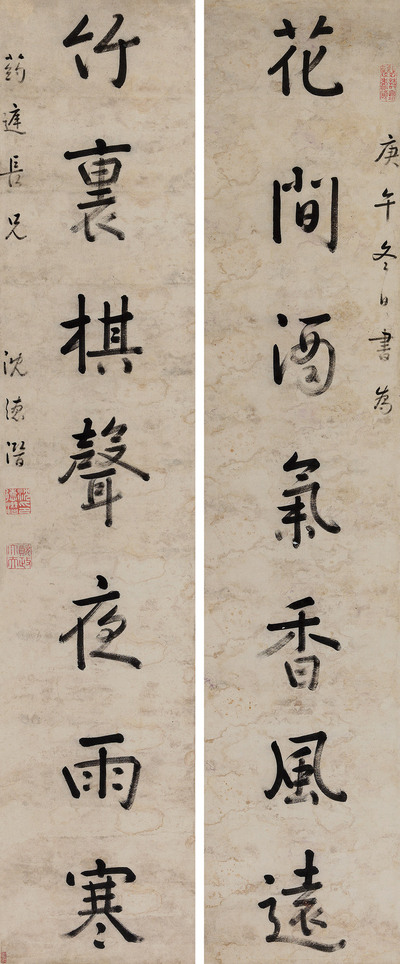 庚午冬日書為
花間酒氣香風遠
竹裏棋聲夜雨寒
葯庭長兄
沈德潛